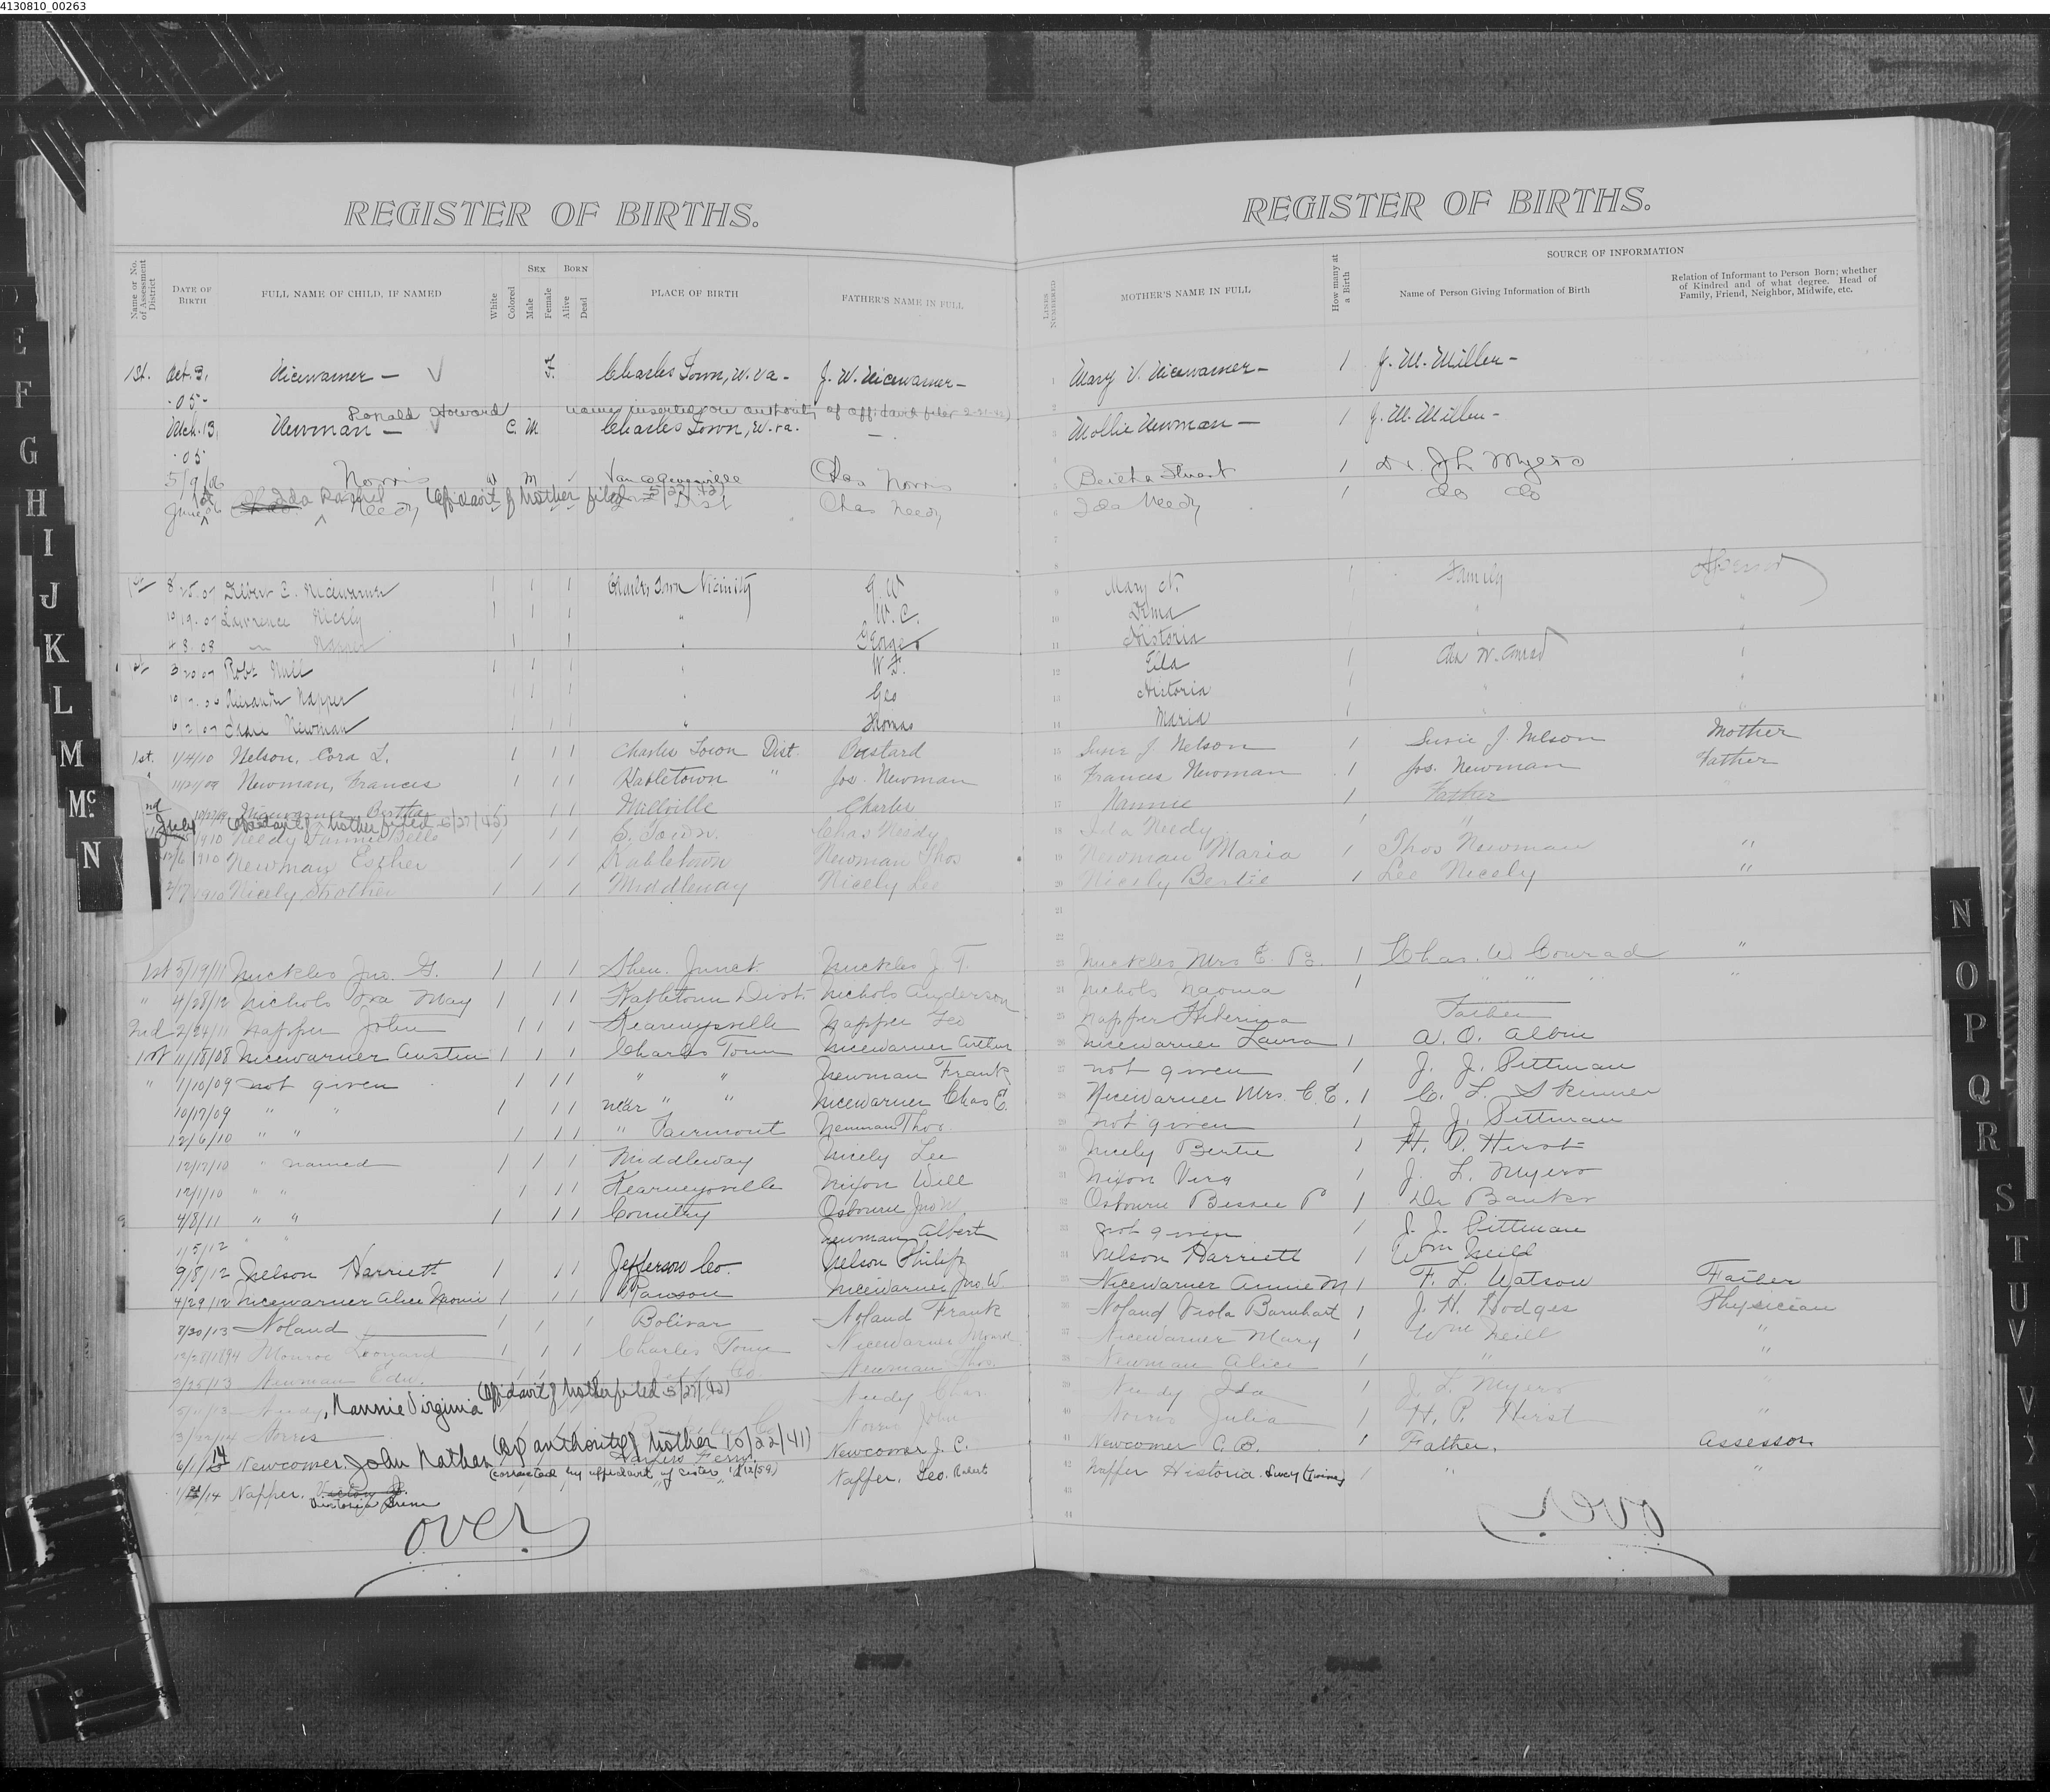 4130810_00263
REGISTER OF BIRTHS.
Name or No. of Assessment District
DATE OF BIRTH
FULL NAME OF CHILD, IF NAMED
White
Colored
SEX
Male
Female
BORN
Alive
Dead
PLACE OF BIRTH
FATHER'S NAME IN FULL
1st. Oct. 3, Nicewarner — Charles Town, W. Va - J. W. Nicewarner —
- 05 -
Ronald Howard names inserted on authority of affidavit filed
Mch. 13, Newman — C. M Charles Town, W. Va. —
- 05
5/9/06 Norris W M Chas Norris
Ida Rachel Affidavit of Mother filed 5/27/42
June Needy Dist Chas Needy
8 25.07 Delbert E. Nicewarner 1 1 1 Charles Town Vicinity G. W
10 19.07 Lawrence Nicely 1 1 1 " W. C.
4 8.08 — Napper 1 1 " George
1st 3 20 07 Robt Null 1 1 1 " W. F.
Alexander Napper 1 1 1 " Geo
6/2/07 Newman 1 1 1 " Thomas
1st. 1/4/10 Nelson, Cora L. 1 1 1 Charles Town Dist. Bastard
" 11/21/09 Newman, Frances 1 1 1 Kabletown " Jos. Newman
Nicewarner Bertha 1 1 Millville Charles
July Affidavit of Mother filed 5/27/42)
1910 Needy Fannie Belle 1 1 1 C. Town. Chas Needy
12/6 1910 Newman Esther 1 1 1 Kabletown Newman Thos
2/17 1910 Nicely Strother 1 1 1 Middleway Nicely Lee
1st 5/19/11 Nuckles Jno. G. 1 1 1 Shen. Junct. Nuckles J. T.
" 4/28/12 Nichols Iva May 1 1 1 Kabletown Dist. Nichols Anderson
2nd 2/24/11 Napper John 1 1 1 Kearneysville Napper Geo
1st 11/18/08 Nicewarner Austin 1 1 1 Charles Town Nicewarner Arthur
" 1/10/09 not given 1 1 1 " " Newman Frank
10/17/09 " " 1 1 1 near " " Nicewarner Chas E.
12/6/10 " " 1 1 1 " Fairmont Newman Thos.
12/17/10 " named 1 1 1 Middleway Nicely Lee
12/1/10 " " 1 1 1 Kearneysville Nixon Will
4/8/11 " " 1 1 1 Country Osbourn Jno W.
1/5/12 " " Newman Albert
9/8/12 Nelson Harriett 1 1 1 Jefferson Co Nelson Philip
4/29/12 Nicewarner Alice Naomi 1 1 1 Ranson Nicewarner Jno. W
7/20/13 Noland — 1 1 1 Bolivar Noland Frank
12/28/1894 Monroe Leonard 1 1 1 Charles Town Nicewarner
3/25/13 Newman Edw. 1 1 Co. Newman Thos.
5/11/13 Needy, Nannie Virginia Affidavit of Mother filed 5/27/42) Needy Chas
3/22/14 Norris Norris John
6/1/14 Newcomer, John Nathan (By authority of Mother 10/22/41) Harpers Ferry Newcomer J. C.
(corrected by affidavit of sister 1/12/59)
1/14 Napper, Victoria Irene Napper, Geo. Robert
over
REGISTER OF BIRTHS.
LINES NUMBERED
MOTHER'S NAME IN FULL
How many at a Birth
SOURCE OF INFORMATION
Name of Person Giving Information of Birth
Relation of Informant to Person Born; whether of Kindred and of what degree. Head of Family, Friend, Neighbor, Midwife, etc.
1 Mary V. Nicewarner — 1 J. M. Miller -
2
3 Mollie Newman — 1 J. M. Miller -
4
5 Bertha Stuart 1 Dr. J L Myers
6 Ida Needy 1 do do
7
8
9 Mary N. 1 Family Assessor
10 "
11 Historia "
12 Ella 1 Chas W. Conrad "
13 Historia 1 " "
14 Maria 1 " "
15 Susie J. Nelson 1 Susie J. Nelson Mother
16 Frances Newman 1 Jos. Newman Father
17 Nannie 1 Father
18 Ida Needy "
19 Newman Maria 1 Thos Newman "
20 Nicely Bertie 1 Lee Nicely "
21
22
23 Nuckles Mrs E. B. 1 Chas. W Conrad "
24 Nichols Naomia 1 " " " "
25 Napper Father
26 Nicewarner Laura 1 A. O. Albin
27 not given 1 J. J. Pittman
28 Nicewarner Mrs. C. E. 1 C. L. Skinner
29 not given 1 J. J. Pittman
30 Nicely Bertie 1 H. P. Hirst
31 Nixon Virg 1 J. L. Myers
32 Osbourn Bessie P 1 Dr Banks
33 not given 1 J. J. Pittman
34 Nelson Harriett 1 Wm Neild
35 Nicewarner Annie M 1 F. L. Watson Father
36 Noland Viola Barnhart 1 J. H. Hodges Physician
37 Nicewarner Mary 1 Wm Neill "
38 Newman Alice 1 " "
39 Needy Ida 1 J. L. Myers "
40 Norris Julia 1 H. P. Hirst "
41 Newcomer C. B. 1 Father. Assessor
42 Napper Historia. Lucy (Twins) 1 " "
43
44
over
E
F
G
H
I
J
K
L
M
Mc
N
N
O
P
Q
R
S
T
U
V